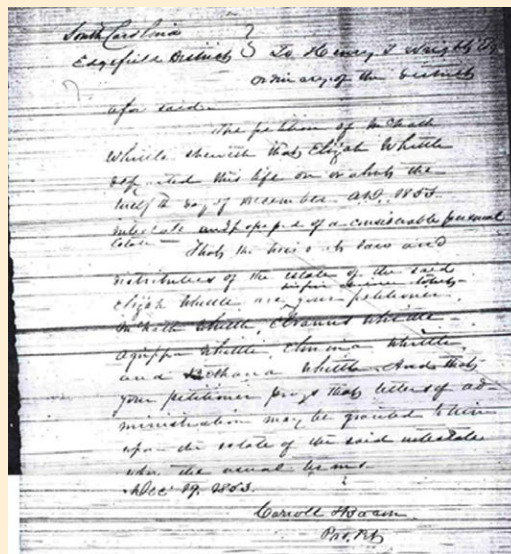 South Carolina
Edgefield District } To Henry T Wright Esq
ordinary of the District
afor said
The petition of McKath
Whittle sheweth that Elijah Whittle
departed this life on or about the
day of December A.D. 1853
intestate and possessed of a considerable personal
estate That the heirs at law and
distributees of the estate of the said
Elijah Whittle are your petitioner
McKath Whittle, Whittle
Agrippa Whittle, Whittle
and Whittle And that
your petitioner prays that letters of ad
ministration may be granted to him
upon the estate of the said intestate
upon the usual terms
Dec 19, 1853.
Carroll & Bacon
Pro. Pet